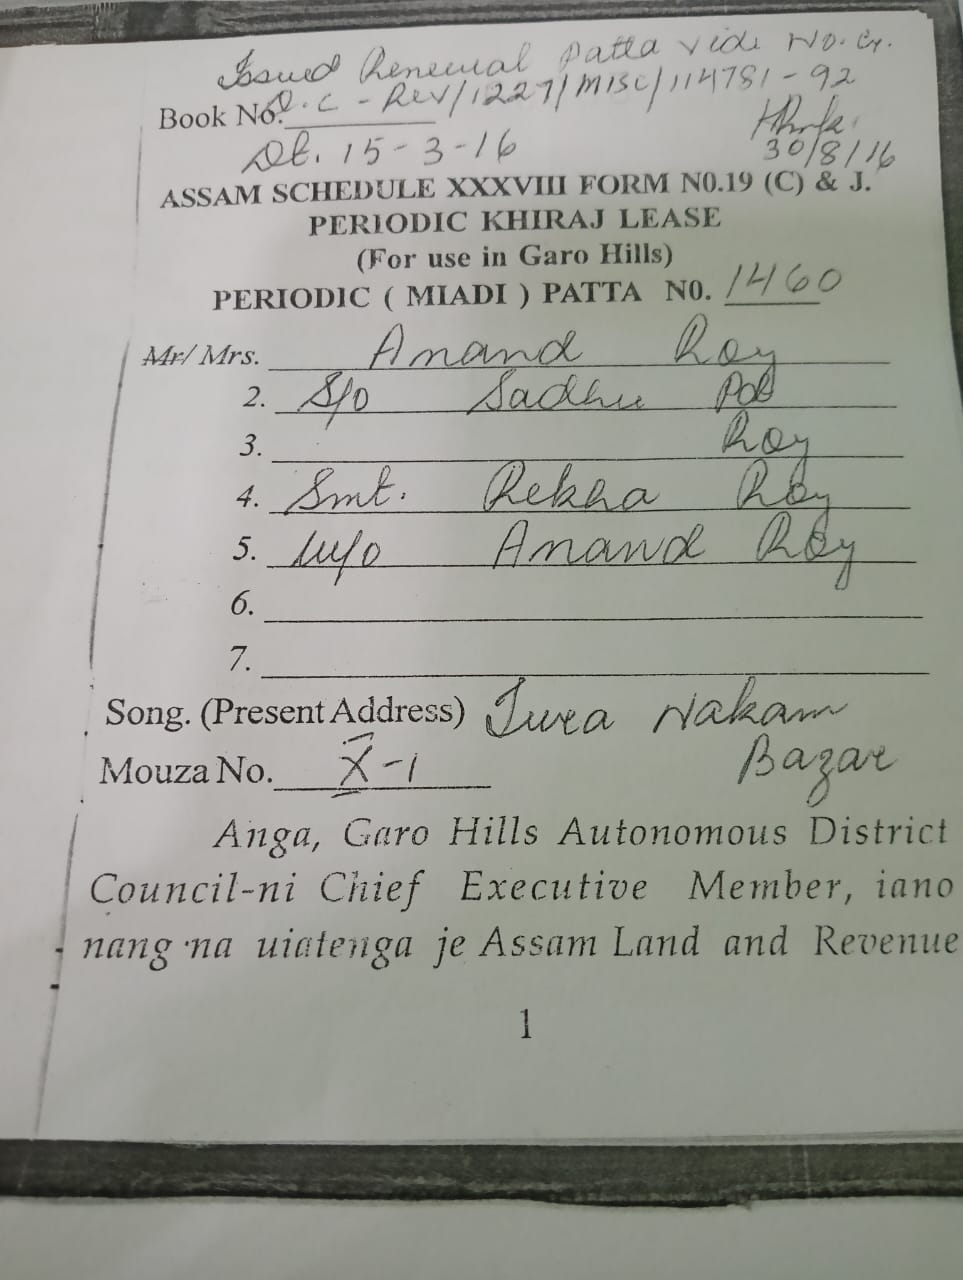 Issued Renewal Patta vide No. G.
D.C - Rev/1227/MISC/114781-92
Book No.
Dt. 15-3-16
30/8/16
ASSAM SCHEDULE XXXVIII FORM N0.19 (C) & J.
PERIODIC KHIRAJ LEASE
(For use in Garo Hills)
PERIODIC ( MIADI ) PATTA N0. 1460
Mr/ Mrs. Anand Roy
2. S/o Sadhu
3. Roy
4. Smt. Rekha Roy
5. W/o Anand Roy
6.
7.
Song. (Present Address) Tura Nakam
Bazar
Mouza No. X-1
Anga, Garo Hills Autonomous District
Council-ni Chief Executive Member, iano
nang·na uiatenga je Assam Land and Revenue
1